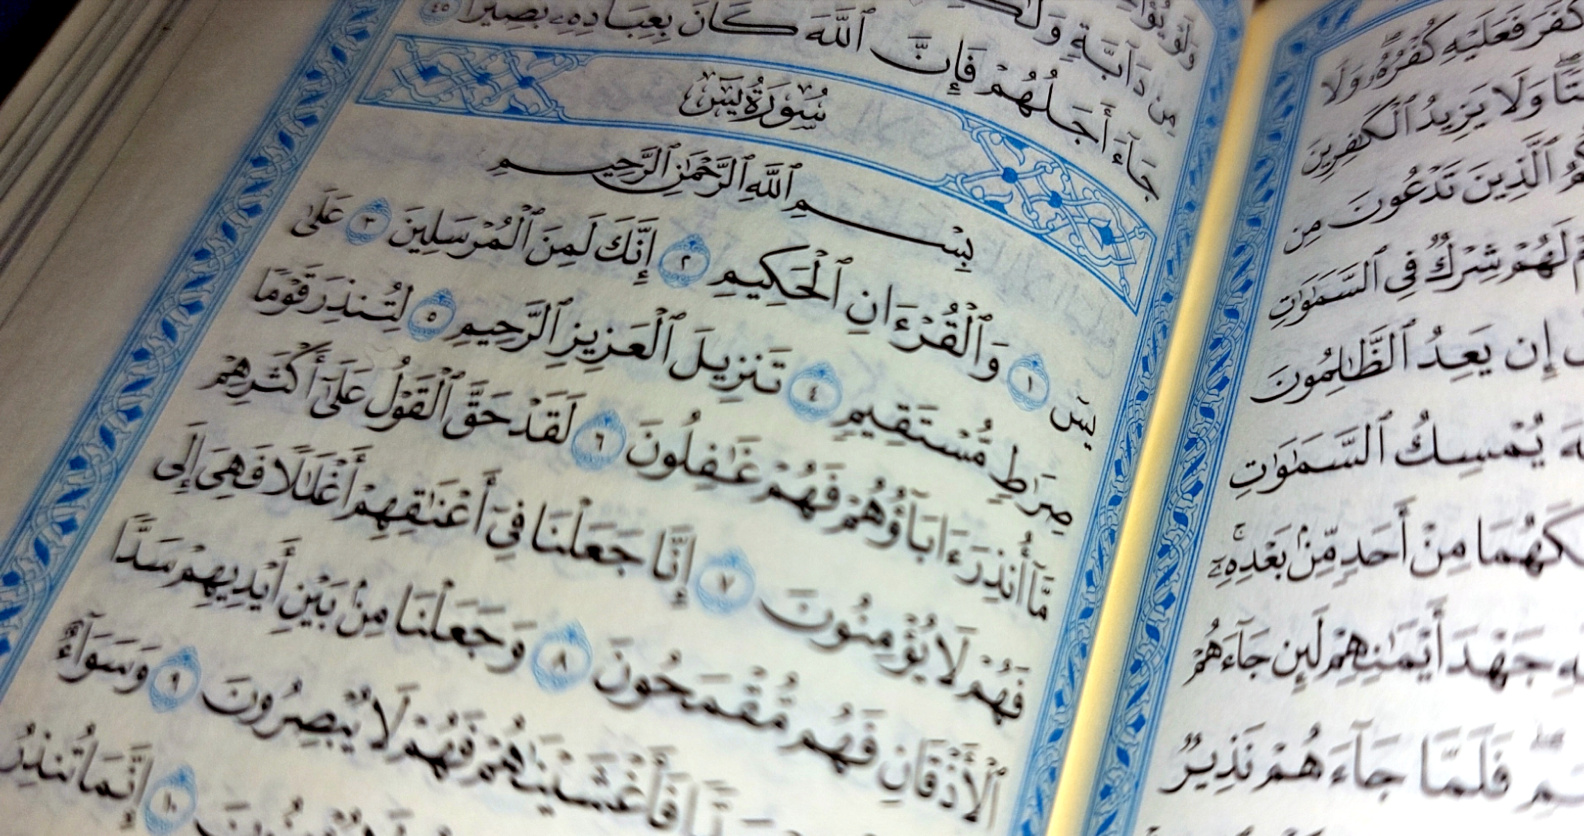 كَفَرَ فَعَلَيْهِ كُفْرُهُۥ وَلَا
وَلَا يَزِيدُ ٱلْكَٰفِرِينَ
ٱلَّذِينَ تَدْعُونَ مِن
لَهُمْ شِرْكٌ فِى ٱلسَّمَٰوَٰتِ
إِن يَعِدُ ٱلظَّٰلِمُونَ
يُمْسِكُ ٱلسَّمَٰوَٰتِ
مِنْ أَحَدٍ مِّنۢ بَعْدِهِۦٓ ۚ
جَهْدَ أَيْمَٰنِهِمْ لَئِن جَآءَهُمْ
فَلَمَّا جَآءَهُمْ نَذِيرٌ
مِن دَآبَّةٍ وَلَٰكِن
جَآءَ أَجَلُهُمْ فَإِنَّ ٱللَّهَ كَانَ بِعِبَادِهِۦ بَصِيرًۢا ٤٥
سُورَةُ يسٓ
بِسْمِ ٱللَّهِ ٱلرَّحْمَٰنِ ٱلرَّحِيمِ
يسٓ ١ وَٱلْقُرْءَانِ ٱلْحَكِيمِ ٢ إِنَّكَ لَمِنَ ٱلْمُرْسَلِينَ ٣ عَلَىٰ
صِرَٰطٍ مُّسْتَقِيمٍ ٤ تَنزِيلَ ٱلْعَزِيزِ ٱلرَّحِيمِ ٥ لِتُنذِرَ قَوْمًا
مَّآ أُنذِرَ ءَابَآؤُهُمْ فَهُمْ غَٰفِلُونَ ٦ لَقَدْ حَقَّ ٱلْقَوْلُ عَلَىٰٓ أَكْثَرِهِمْ
فَهُمْ لَا يُؤْمِنُونَ ٧ إِنَّا جَعَلْنَا فِىٓ أَعْنَٰقِهِمْ أَغْلَٰلًا فَهِىَ إِلَى
ٱلْأَذْقَانِ فَهُم مُّقْمَحُونَ ٨ وَجَعَلْنَا مِنۢ بَيْنِ أَيْدِيهِمْ سَدًّا
فَأَغْشَيْنَٰهُمْ فَهُمْ لَا يُبْصِرُونَ ٩ وَسَوَآءٌ
١٠ إِنَّمَا تُنذِرُ